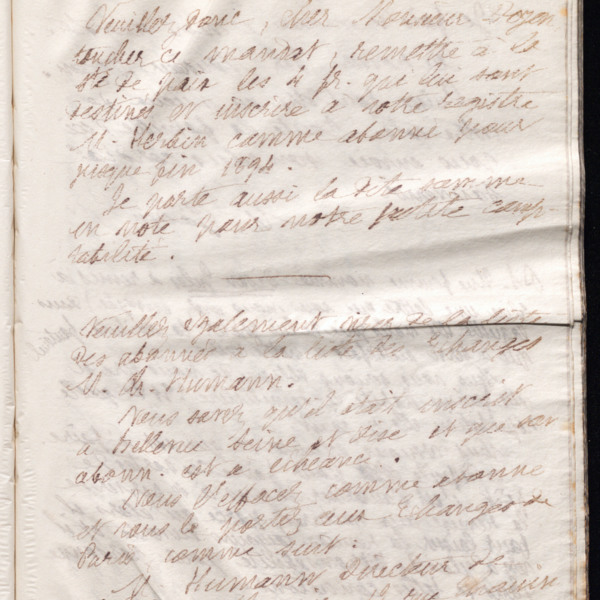 Veuillez donc, cher Monsieur
toucher ce mandat, remettre à la
Sté de paix les 4 fr. qui lui sont
destinés et inscrire à notre registre
M. Herbin comme abonné pour
jusque fin 1894.
Je porte aussi la dite somme
en note pour notre petite comp-
tabilité.
Veuillez également de la liste
des abonnés à la liste des Echanges
M. Ch. Humann.
Vous savez qu'il était inscrit
à Bellevue Seine et Oise et que son
abonn. est à échéance.
Vous l'effacez comme abonné
et vous le portez aux Echanges de
Paris comme suit:
M. Humann Directeur de
rue